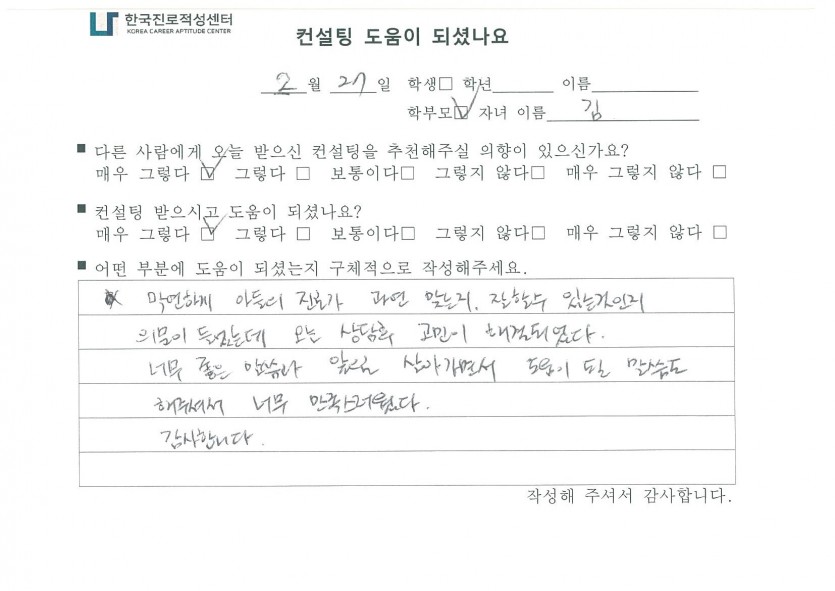 한국진로적성센터
KOREA CAREER APTITUDE CENTER
컨설팅 도움이 되셨나요
2월 27일 학생□ 학년 이름
학부모☑ 자녀 이름 김
■ 다른 사람에게 오늘 받으신 컨설팅을 추천해주실 의향이 있으신가요?
매우 그렇다 ☑ 그렇다 □ 보통이다□ 그렇지 않다□ 매우 그렇지 않다 □
■ 컨설팅 받으시고 도움이 되셨나요?
매우 그렇다 ☑ 그렇다 □ 보통이다□ 그렇지 않다□ 매우 그렇지 않다 □
■ 어떤 부분에 도움이 되셨는지 구체적으로 작성해주세요.
막연하게 아들의 진로가 과연 맞는지, 잘할수 있는것인지
의문이 들었는데 오늘 상담후 고민이 해결되었다.
너무 좋은 말씀과 앞으로 살아가면서 도움이 될 말씀도
해주셔서 너무 만족스러웠다.
감사합니다.
작성해 주셔서 감사합니다.